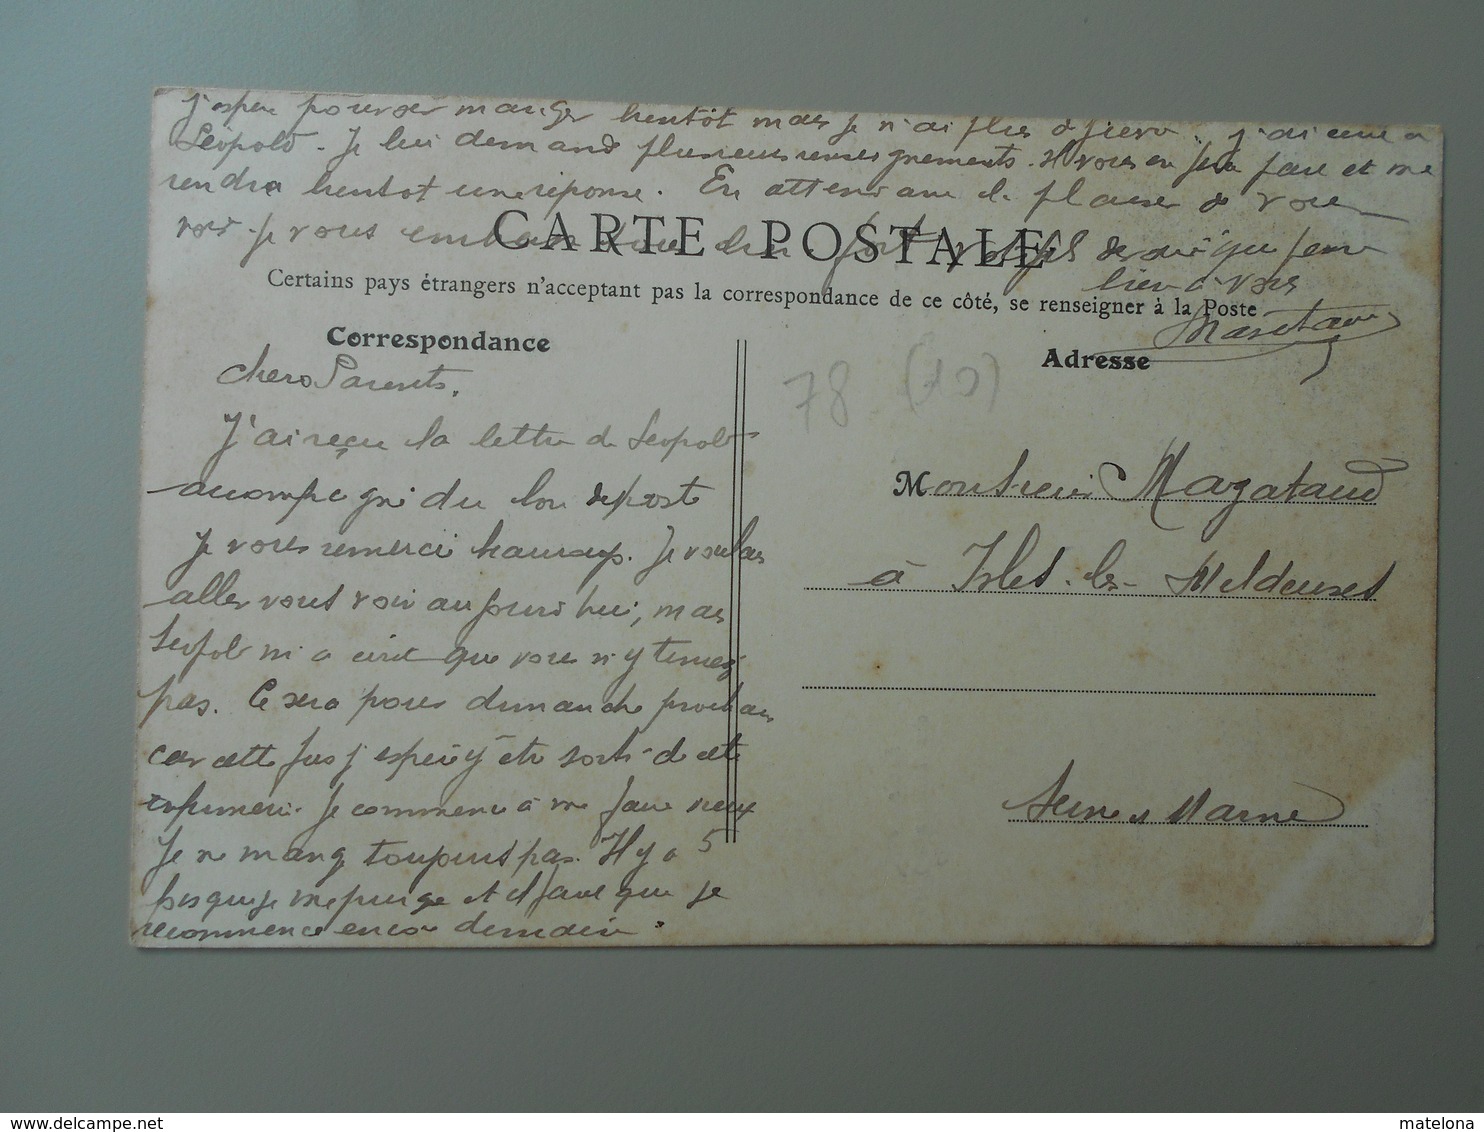 j'espère pouvoir manger bientôt mais je n'ai plus de fièvre. j'ai écrit a
Léopold. Je lui demande plusieurs renseignements. Il vous en fera part et me
rendra bientot une réponse. En attendant le plaisir de vous
voir. Je vous embrasse tous bien fort votre fils dévoué qui pense
bien à vous
CARTE POSTALE
Certains pays étrangers n'acceptant pas la correspondance de ce côté, se renseigner à la Poste
Correspondance
Adresse
chers Parents,
78 (10)
J'ai reçu la lettre de Léopold
accompagné du bon de poste
Je vous remercie beaucoup. Je voulais
aller vous voir aujourd'hui, mais
Léopold m'a écrit que vous n'y teniez
pas. Ce sera pour dimanche prochain
car cette fois j'espère y être sorti de cette
infirmerie. Je commence à me faire vieux
Je ne mange toujours pas. Il y a 5
fois que je me purge et il faut que je
recommence encore demain.
Monsieur Magataud
à Isles-les-Meldeuses
Seine et Marne
delcampe.net
matelona